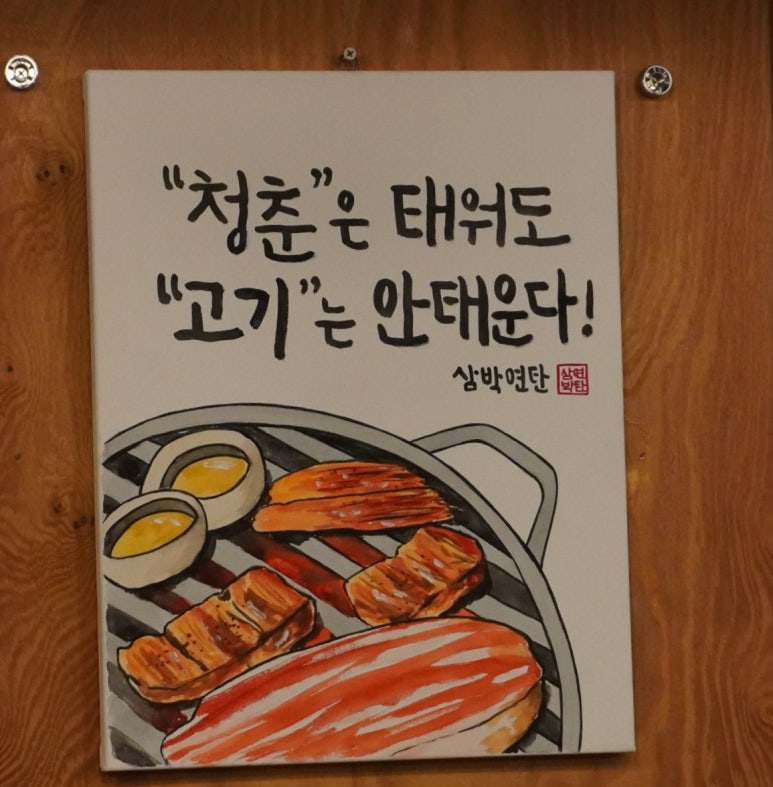 "청춘"은 태워도
"고기"는 안태운다!
삼박연탄
삼연
박탄